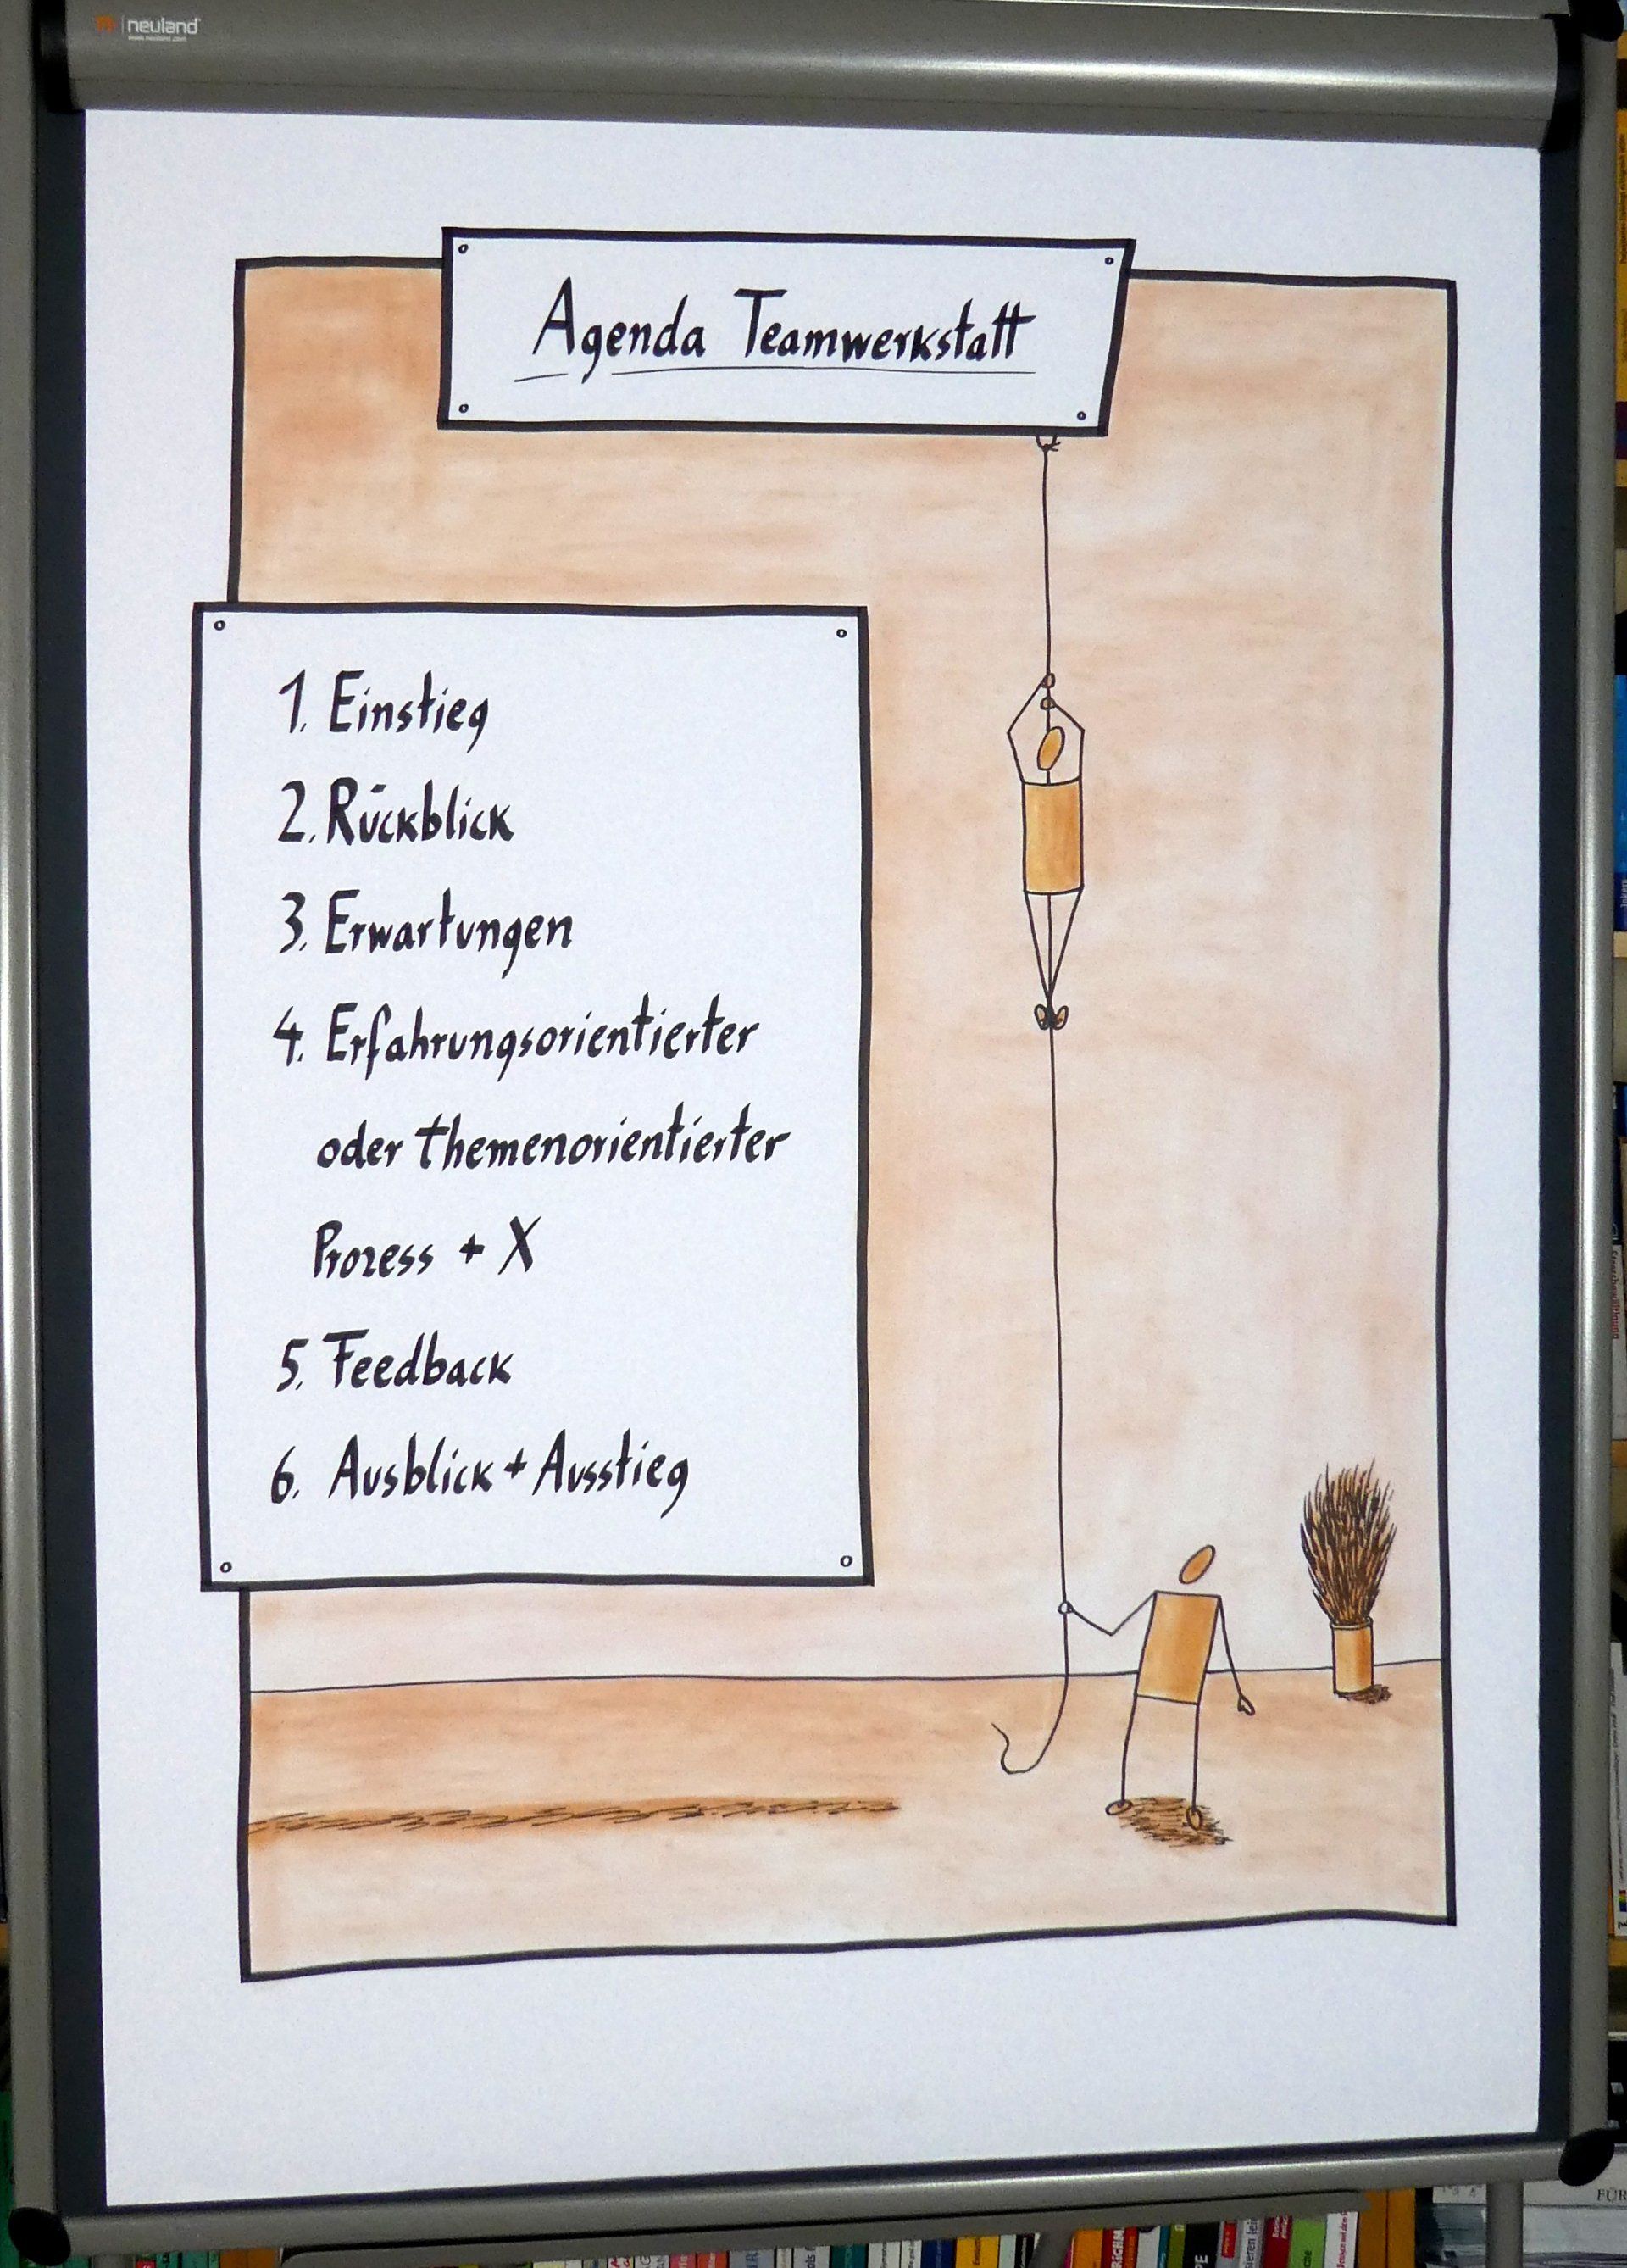 neuland
Agenda Teamwerkstatt
1. Einstieg
2. Rückblick
3. Erwartungen
4. Erfahrungsorientierter
oder themenorientierter
Prozess + X
5. Feedback
6. Ausblick + Ausstieg
FÜR